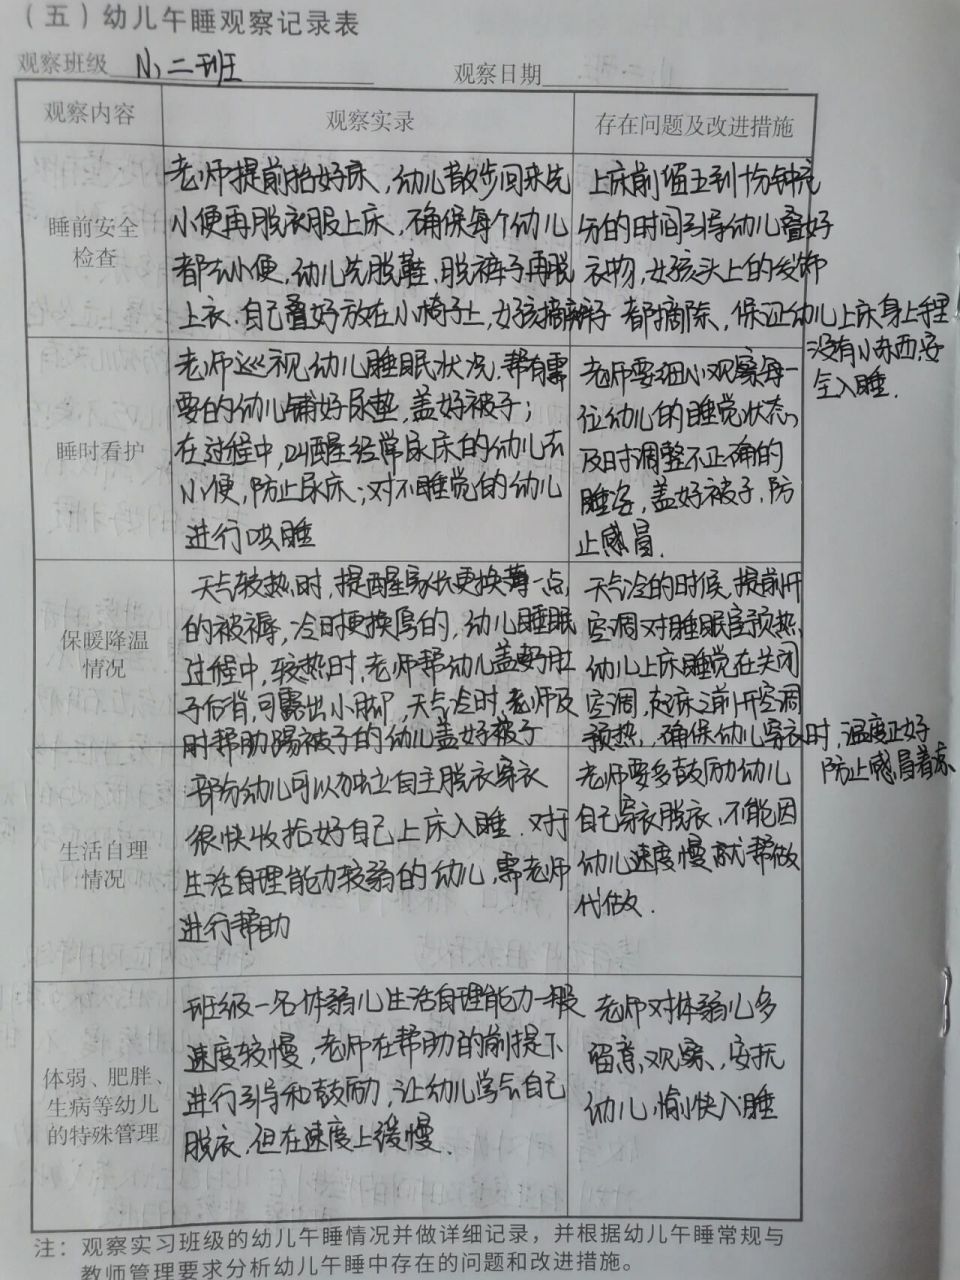 （五）幼儿午睡观察记录表
观察班级 小二班 观察日期
观察内容
观察实录
存在问题及改进措施
睡前安全
检查
老师提前抬好床，幼儿散步回来先
小便再脱衣服上床，确保每个幼儿
都去小便，幼儿先脱鞋、脱裤子再脱
上衣．自己叠好放在小椅子上，女孩摘辫子
上床前留五到十分钟充
分的时间引导幼儿叠好
衣物，女孩头上的发饰
都摘除，保证幼儿上床身上裡
没有小东西，安
全入睡．
睡时看护
老师巡视幼儿睡眠状况，帮有需
要的幼儿铺好尿垫，盖好被子；
在过程中，叫醒经常尿床的幼儿去
小便，防止尿床；对不睡觉的幼儿
进行哄睡
老师要细心观察每一
位幼儿的睡觉状态，
及时调整不正确的
睡姿，盖好被子，防
止感冒．
保暖降温
情况
天气较热时，提醒家长更换薄一点
的被褥，冷时更换厚的，幼儿睡眠
过程中，较热时，老师帮幼儿盖好肚
子后背，可露出小脚，天气冷时，老师及
时帮助踢被子的幼儿盖好被子
天气冷的时候，提前开
空调对睡眠室预热，
幼儿上床睡觉在关闭
空调，起床之前开空调
预热，确保幼儿穿衣时，温度正好
防止感冒着凉
生活自理
情况
部份幼儿可以独立自主脱衣穿衣
很快收拾好自己上床入睡．对于
生活自理能力较弱的幼儿，需老师
进行帮助
老师要多鼓励幼儿
自己穿衣脱衣，不能因
幼儿速度慢就帮做
代做．
体弱、肥胖、
生病等幼儿
的特殊管理
班级一名体弱儿生活自理能力一般
速度较慢，老师在帮助的前提下
进行引导和鼓励，让幼儿学会自己
脱衣，但在速度上缓慢．
老师对体弱儿多
留意，观察、安抚
幼儿，愉快入睡
注：观察实习班级的幼儿午睡情况并做详细记录，并根据幼儿午睡常规与
教师管理要求分析幼儿午睡中存在的问题和改进措施。